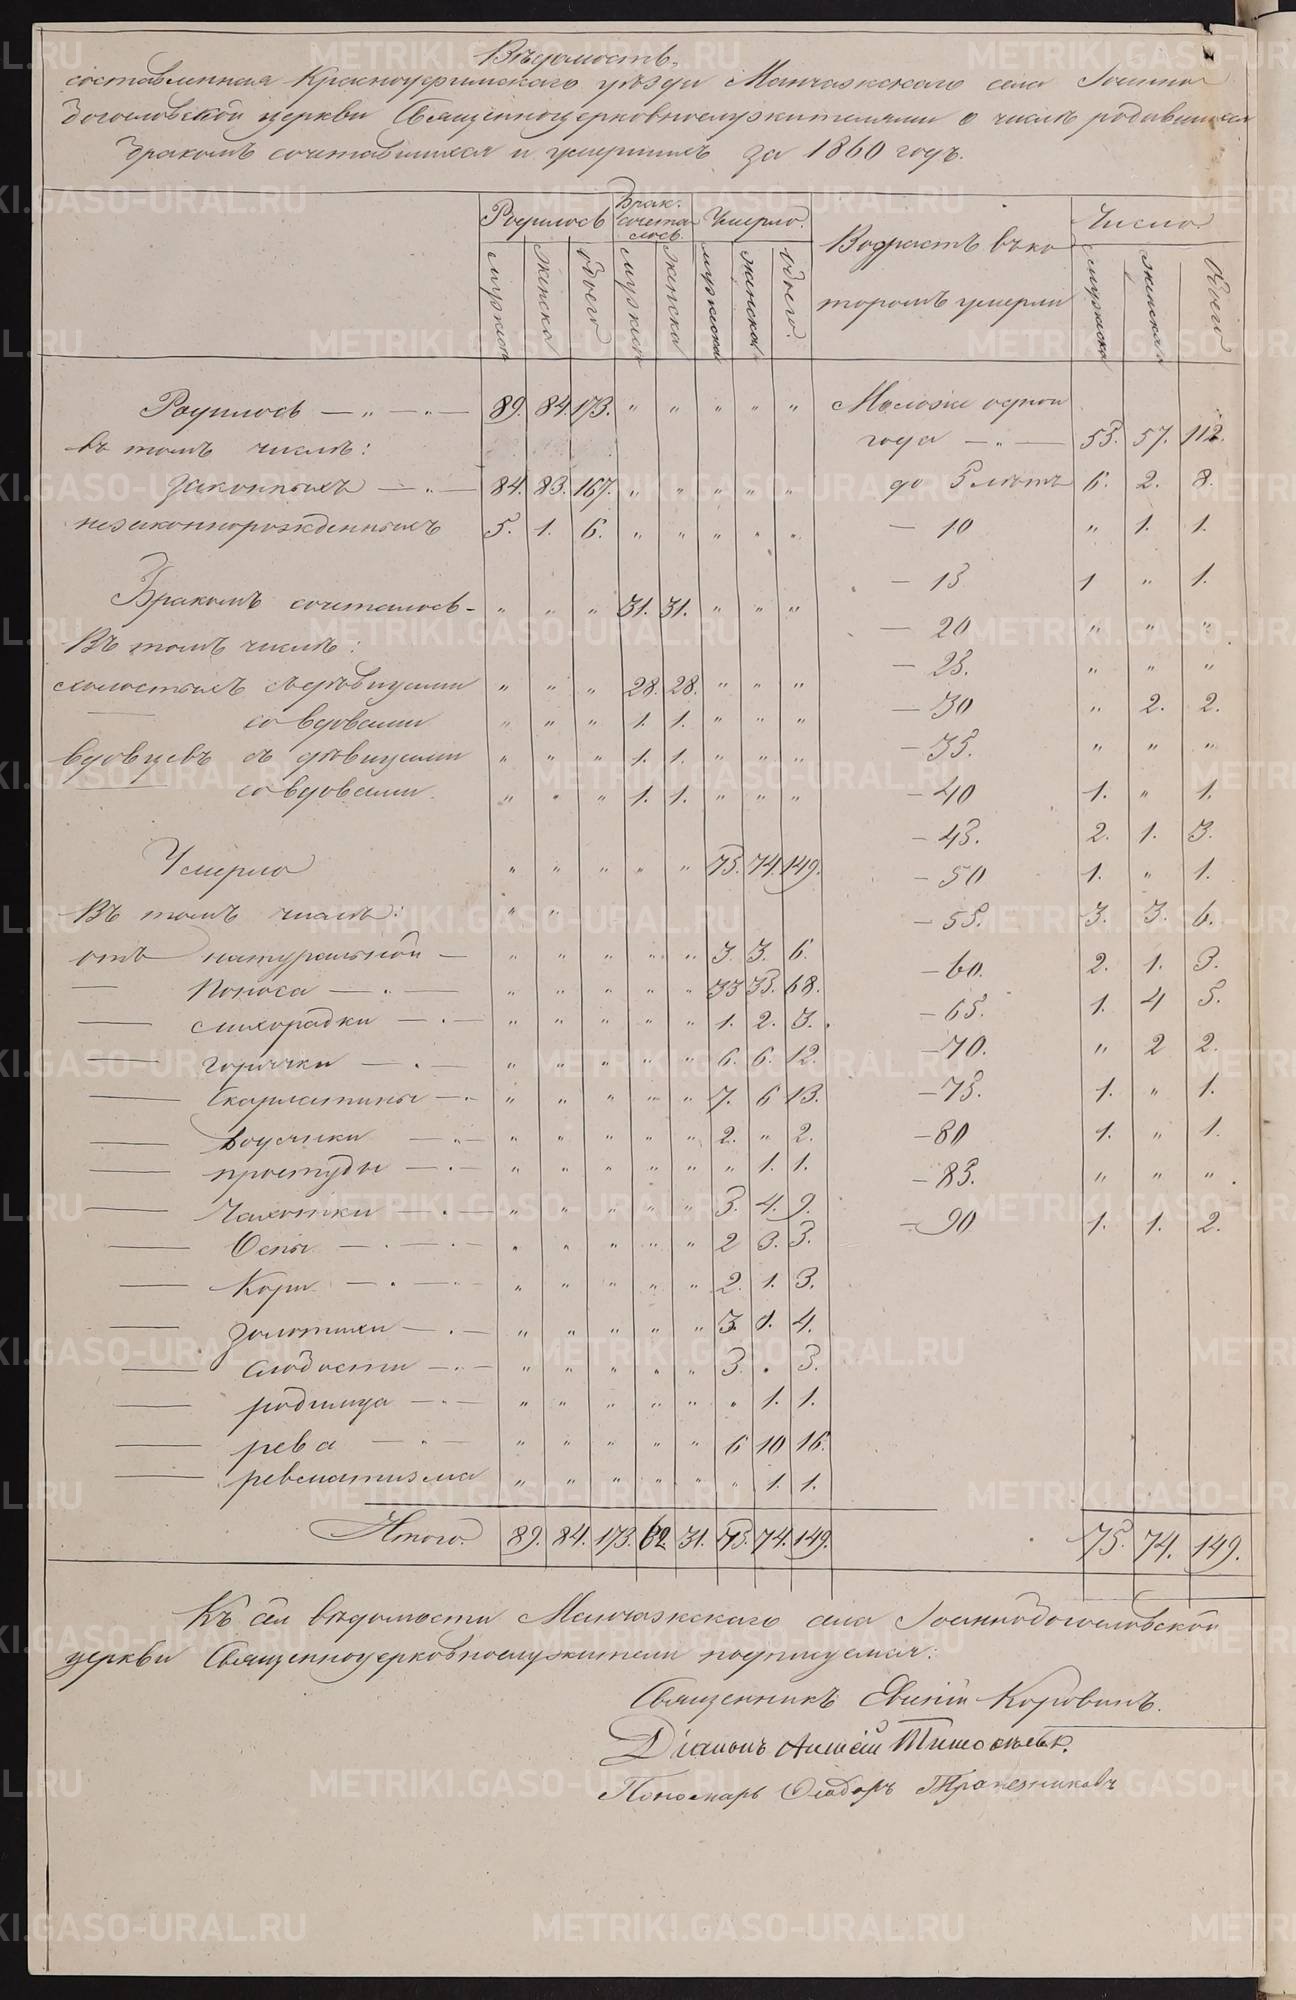 Вѣдомость,
составленная Красноуфимскаго уѣзда Манчажскаго села Іоанно-
Богословской церкви Священноцерковнослужителями о числѣ родившихся
бракомъ сочетавшихся и умершихъ за 1860 годъ.
Родилось Брак: сочета-лось. Умерло. Возрастъ въ ко-торомъ умерли Число.
мужск женска обоего мужск женска мужска женска обоего. мужска женска обоего
Родилось — „ — „ — 89. 84. 173. „ „ „ „ „ Моложе одного
въ томъ числѣ: года — „ — 55. 57. 112.
законныхъ — „ — 84. 83. 167. „ „ „ „ „ до 5 лѣтъ 6. 2. 8.
незаконнорожденныхъ 5. 1. 6. „ „ „ „ „ — 10 „ 1. 1.
— 15 1 „ 1.
Бракомъ сочеталось - „ „ „ 31. 31. „ „ „
— 20 „ „ „
Въ томъ числѣ:
— 25. „ „ „
холостыхъ съ дѣвицами „ „ „ 28. 28. „ „ „
— со вдовами „ „ „ 1. 1. „ „ „ — 30 „ 2. 2.
вдовцевъ съ дѣвицами „ „ „ 1. 1. „ „ „ — 35. „ „ „
— со вдовами. „ „ „ 1. 1. „ „ „ — 40 1. „ 1.
— 45. 2. 1. 3.
Умерло „ „ „ „ „ 75. 74. 149. — 50 1. „ 1.
Въ томъ числѣ: „ „ — 55. 3. 3. 6.
отъ натуральной — „ „ „ „ „ 3. 3. 6. — 60. 2. 1. 3.
— Поноса — . — „ „ „ „ „ 33 35. 68. — 65. 1. 4 5.
— лихорадки — . — „ „ „ „ „ 1. 2. 3.
— горячки — . — „ „ „ „ „ 6. 6. 12. — 70. „ 2 2.
— Скарлатины — . „ „ „ „ „ 7. 6 13. — 75. 1. „ 1.
— Водянки — „ — „ „ „ „ „ 2. „ 2. — 80 1. „ 1.
— простуды — . — „ „ „ „ „ „ 1. 1. — 85. „ „ „
— Чахотки — . — „ „ „ „ „ 4. 9. — 90 1. 1. 2.
— Оспы — . — „ „ „ „ „ 2 3.
— Кори — . — „ „ „ „ „ 2. 1. 3.
— золотухи — . — „ „ „ „ „ 3. 1. 4.
— слабости — . — „ „ „ „ „ 3. . 3.
— родимца — . — „ „ „ „ „ „ 1. 1.
— рева — „ — „ „ „ „ „ 6 10 16.
— ревматизма „ „ „ „ „ „ 1. 1.
Итого. 89. 84. 173. 62 31. 75. 74. 149. 75. 74. 149.
Къ сей вѣдомости Манчажскаго села Іоаннобогословской
церкви Священноцерковнослужители подписуемся:
Священникъ Коровинъ.
Діаконъ
Пономарь Ѳеодоръ Трапезниковъ
METRIKI.GASO-URAL.RU